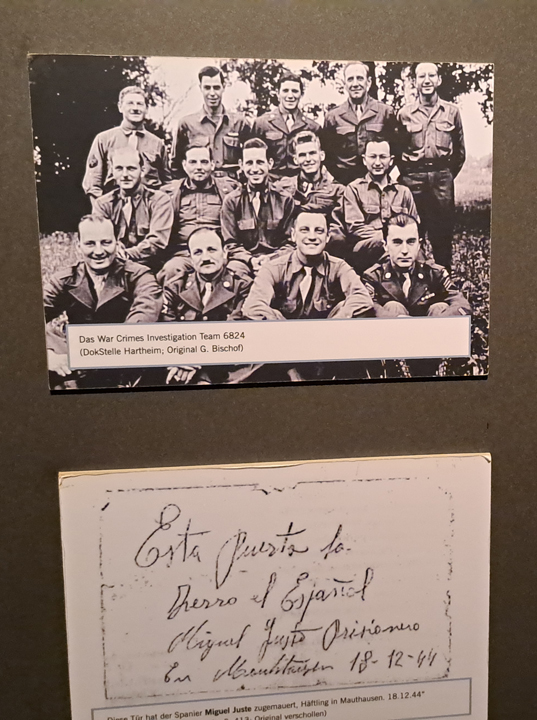 Das War Crimes Investigation Team 6824
(DokStelle Hartheim; Original G. Bischof)
Esta puerta la
Miguel Juste Prisionero
En Mauthausen 18-12-44
Diese Tür hat der Spanier Miguel Juste zugemauert, Häftling in Mauthausen. 18.12.44"
413, Original verschollen)